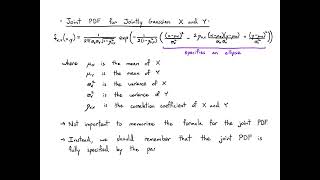 • Joint PDF for Jointly Gaussian X and Y:
f_{X,Y}(x,y) = \frac{1}{2\pi \sigma_X \sigma_Y \sqrt{1-\rho_{X,Y}^2}} exp(-\frac{1}{2(1-\rho_{X,Y}^2)} (\frac{(x-\mu_X)^2}{\sigma_X^2} - 2\rho_{X,Y} \frac{(x-\mu_X)(y-\mu_Y)}{\sigma_X \sigma_Y} + \frac{(y-\mu_Y)^2}{\sigma_Y^2}))
specifies an ellipse
where μ_X is the mean of X
μ_Y is the mean of Y
σ_X^2 is the variance of X
σ_Y^2 is the variance of Y
ρ_{X,Y} is the correlation coefficient of X and Y
→ Not important to memorize the formula for the joint PDF.
→ Instead, we should remember that the joint PDF is
fully specified by the par